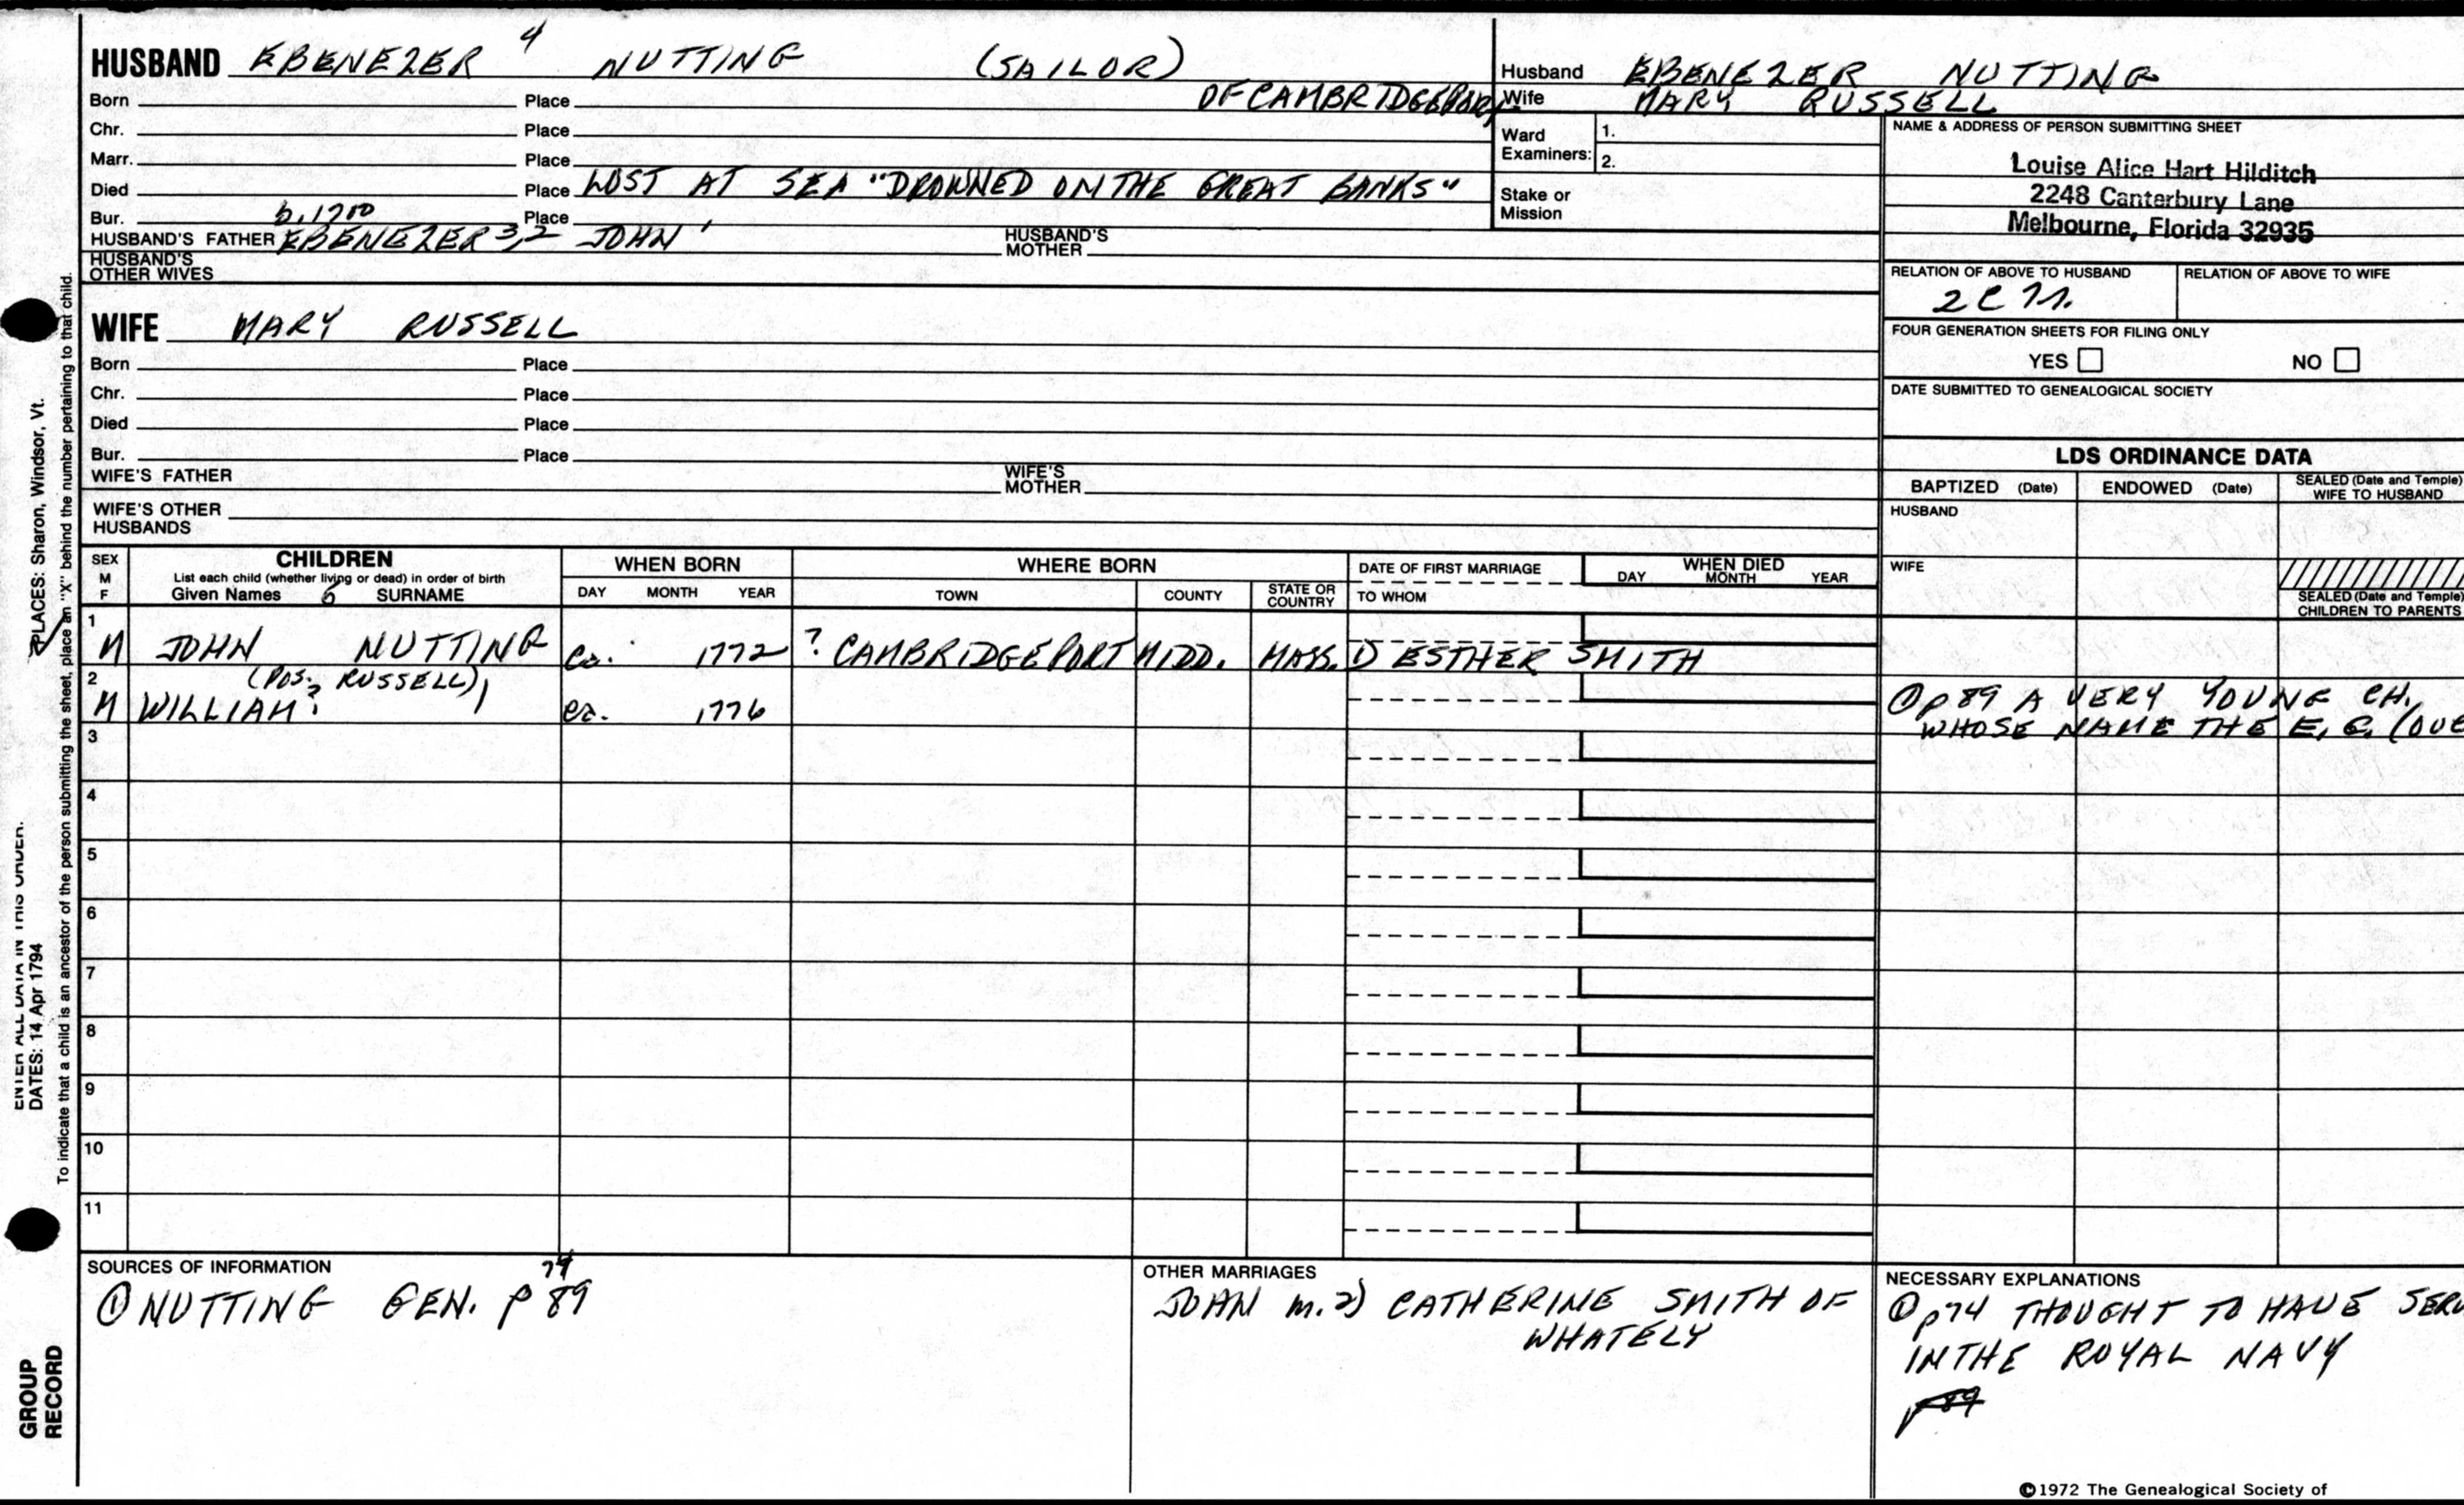 HUSBAND EBENEZER 4 NUTTING (SAILOR)
Born Place OF CAMBRIDGEPORT
Chr. Place
Marr. Place
Died Place LOST AT SEA "DROWNED ON THE GREAT BANKS"
Bur. Place
b. 1700
HUSBAND'S FATHER EBENEZER 3,2 JOHN 1 HUSBAND'S MOTHER
HUSBAND'S OTHER WIVES
Husband EBENEZER NUTTING
Wife MARY RUSSELL
Ward Examiners: 1.
2.
Stake or Mission
NAME & ADDRESS OF PERSON SUBMITTING SHEET
Louise Alice Hart Hilditch
2248 Canterbury Lane
Melbourne, Florida 32935
RELATION OF ABOVE TO HUSBAND RELATION OF ABOVE TO WIFE
FOUR GENERATION SHEETS FOR FILING ONLY
YES NO
DATE SUBMITTED TO GENEALOGICAL SOCIETY
WIFE MARY RUSSELL
Born Place
Chr. Place
Died Place
Bur. Place
WIFE'S FATHER WIFE'S MOTHER
WIFE'S OTHER HUSBANDS
LDS ORDINANCE DATA
BAPTIZED (Date) ENDOWED (Date) SEALED (Date and Temple) WIFE TO HUSBAND
HUSBAND
WIFE
SEALED (Date and Temple) CHILDREN TO PARENTS
SEX M F
CHILDREN
List each child (whether living or dead) in order of birth
Given Names 6 SURNAME
WHEN BORN
DAY MONTH YEAR
WHERE BORN
TOWN COUNTY STATE OR COUNTRY
DATE OF FIRST MARRIAGE
TO WHOM
WHEN DIED
DAY MONTH YEAR
1
M JOHN NUTTING ca. 1772 ? CAMBRIDGEPORT MIDD. MASS. 1) ESTHER SMITH
2 (POS. RUSSELL)
M WILLIAM? ca. 1776
① p 89 A VERY YOUNG CH.
WHOSE NAME THE E, G, (OVE
3
4
5
6
7
8
9
10
11
SOURCES OF INFORMATION
74
① NUTTING GEN. p 89
OTHER MARRIAGES
JOHN m. 2) CATHERINE SMITH OF
WHATELY
NECESSARY EXPLANATIONS
① p74 THOUGHT TO HAVE SERV
IN THE ROYAL NAVY
p 89
©1972 The Genealogical Society of
ENTER ALL DATA IN THIS ORDER.
PLACES: Sharon, Windsor, Vt.
DATES: 14 Apr 1794
To indicate that a child is an ancestor of the person submitting the sheet, place an "X" behind the number pertaining to that child.
GROUP
RECORD